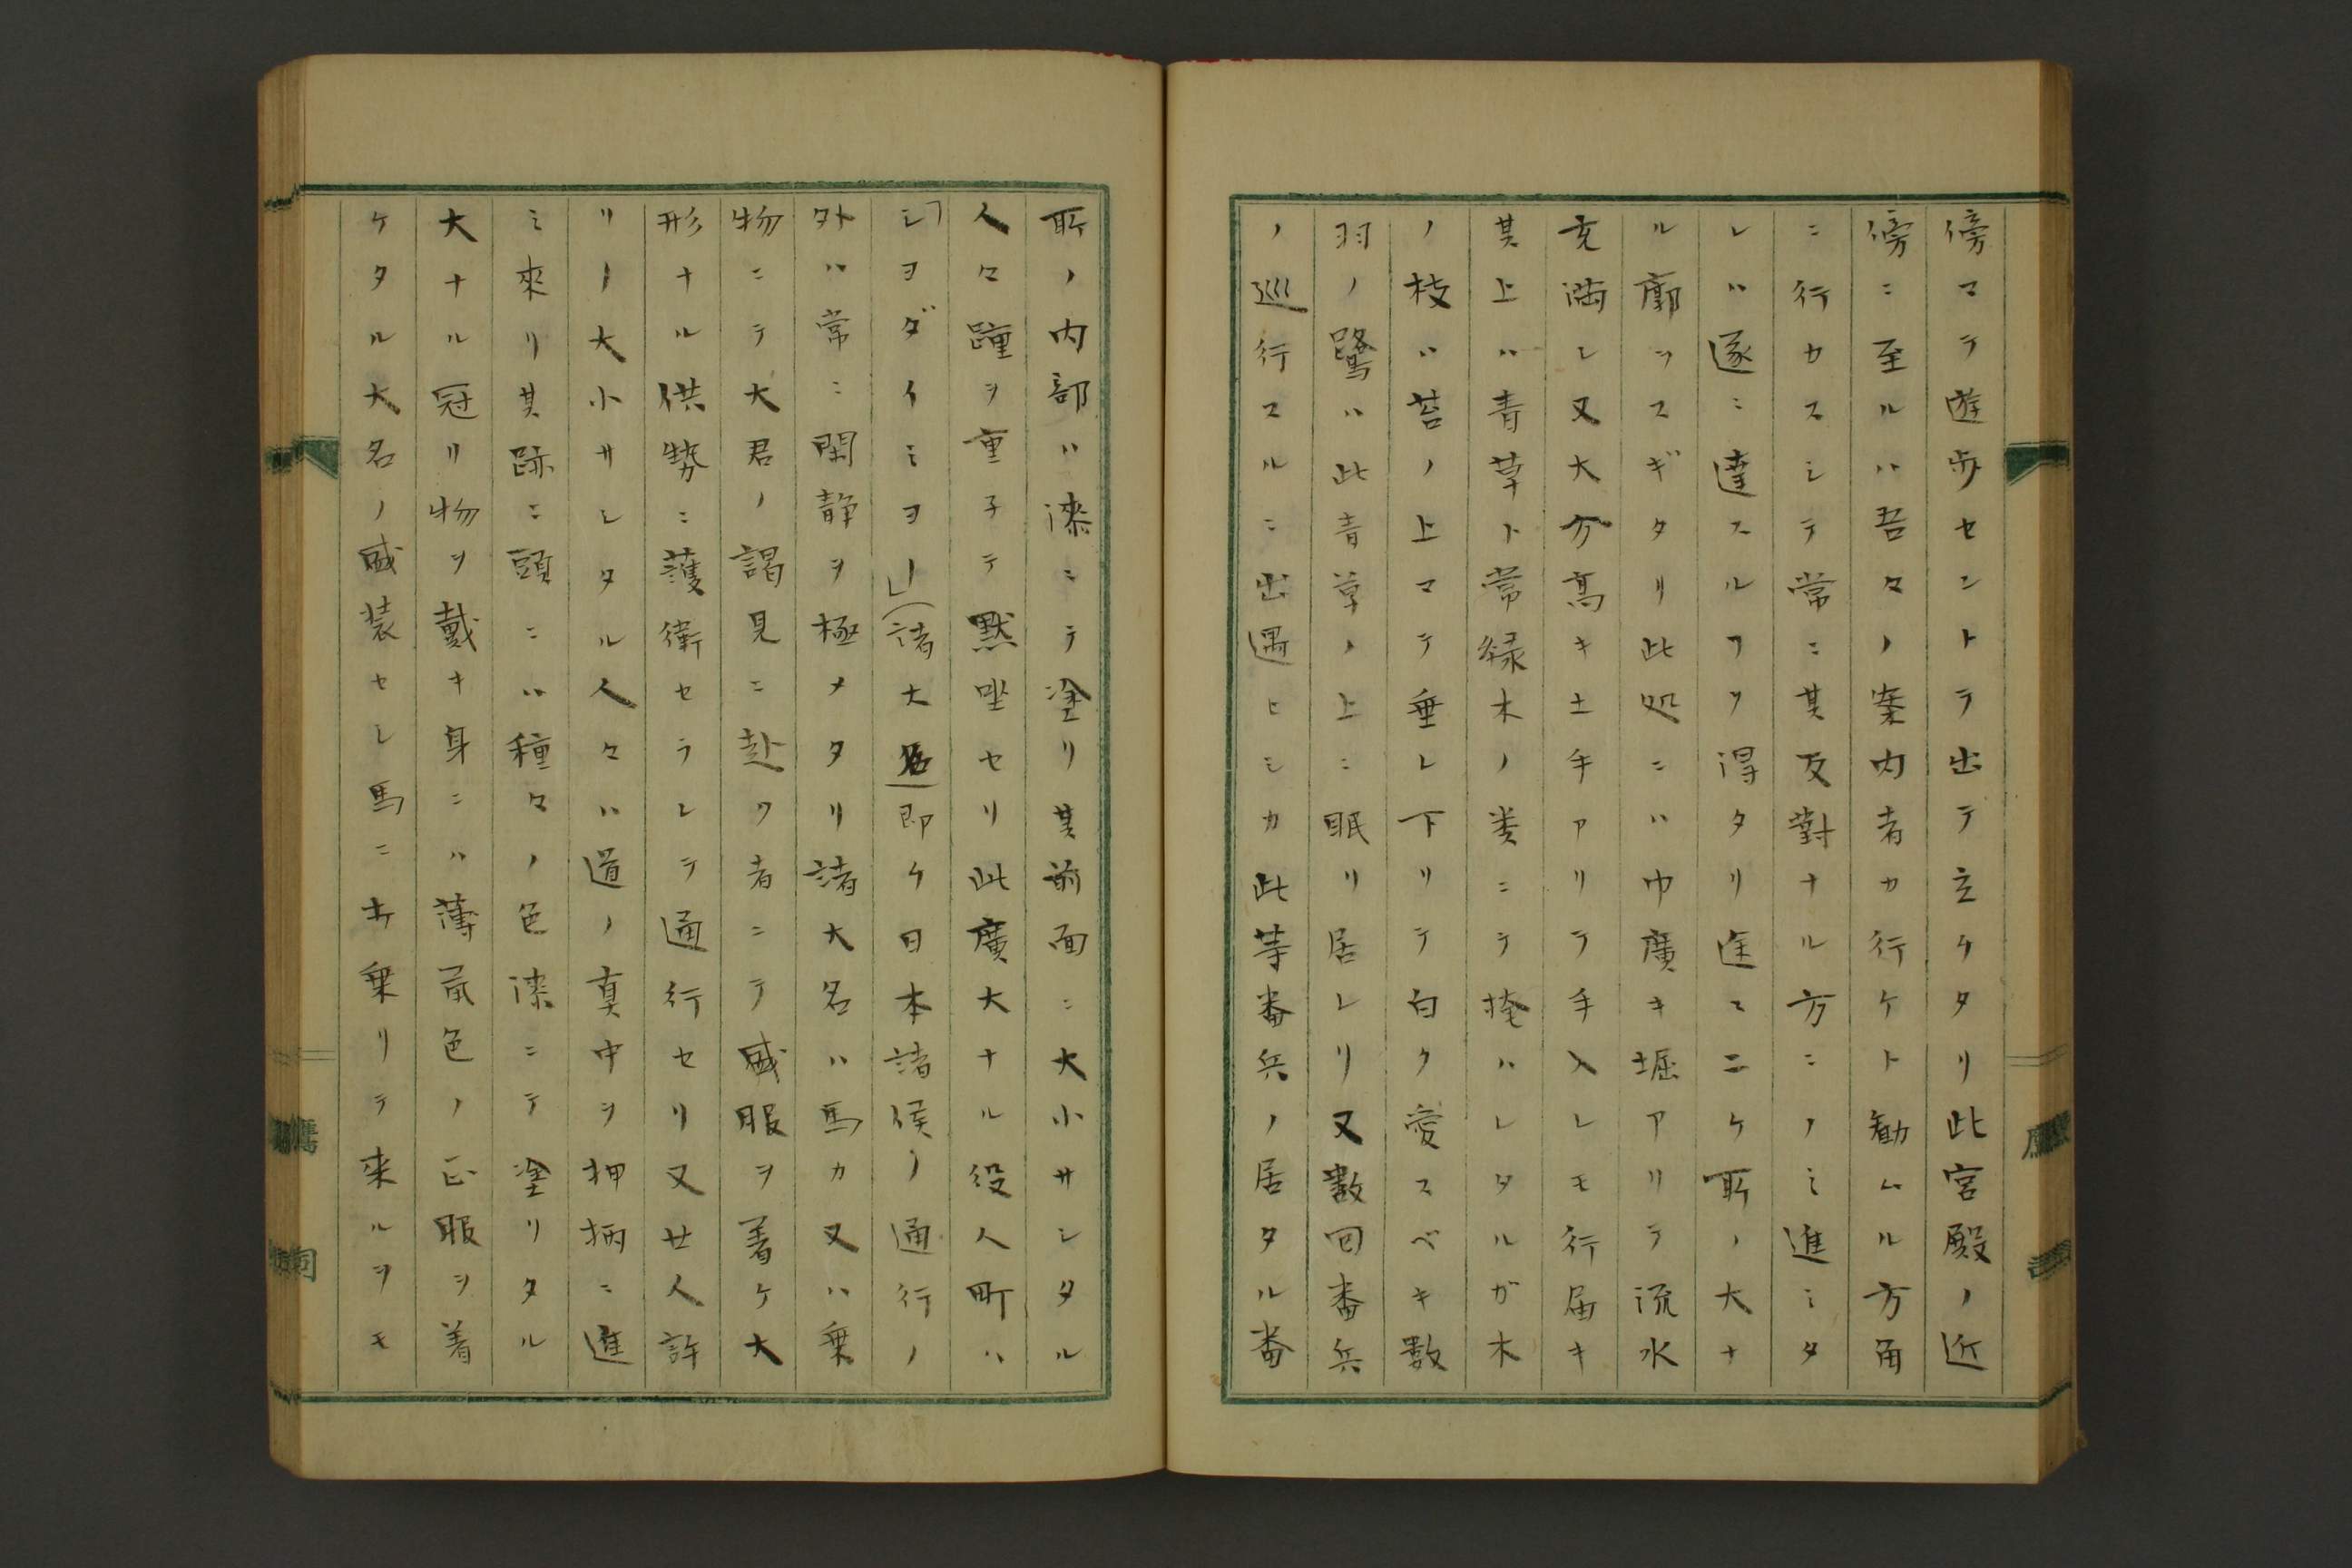 傍マテ遊歩セントテ出テ立ケタリ此宮殿ノ近
傍ニ至ルハ吾々ノ案内者カ行ケト勧ムル方角
ニ行カスシテ常ニ其反對ナル方ニノミ進ミタ
レハ遂ニ達スルヿヲ得タリ途マニケ所ノ大ナ
ル廓ヲスギタリ此処ニハ巾廣キ堀アリテ流水
充満シ又大分高キ土手アリテ手入レモ行届キ
其上ハ青草ト常緑木ノ类ニテ掩ハレタルガ木
ノ枝ハ苔ノ上マテ垂レ下リテ白ク愛スベキ数
羽ノ鷺ハ此青草ノ上ニ眠リ居レリ又數回番兵
ノ巡行スルニ出遇ヒシカ此等番兵ノ居タル番
所ノ内部ハ漆ニテ塗リ其前面ニ大小サシタル
人々踵ヲ重子テ黙坐セリ此廣大ナル役人町ハ
「シヨダイミヨー」(諸大名)即ケ日本諸侯ノ通行ノ
外ハ常ニ閑静ヲ極メタリ諸大名ハ馬カ又ハ乗
物ニテ大君ノ謁見ニ赴ク者ニテ威服ヲ着ケ大
形ナル供勢ニ護衛セラレテ通行セリ又廿人許
リノ大小サシタル人々ハ道ノ真中ヲ押柄ニ進
ミ來リ其跡ニ頭ニハ種々ノ色漆ニテ塗リタル
大ナル冠リ物ヲ戴キ身ニハ薄鼠色ノ正服ヲ着
ケタル大名ノ威装セシ馬ニ打乗リテ来ルヲモ